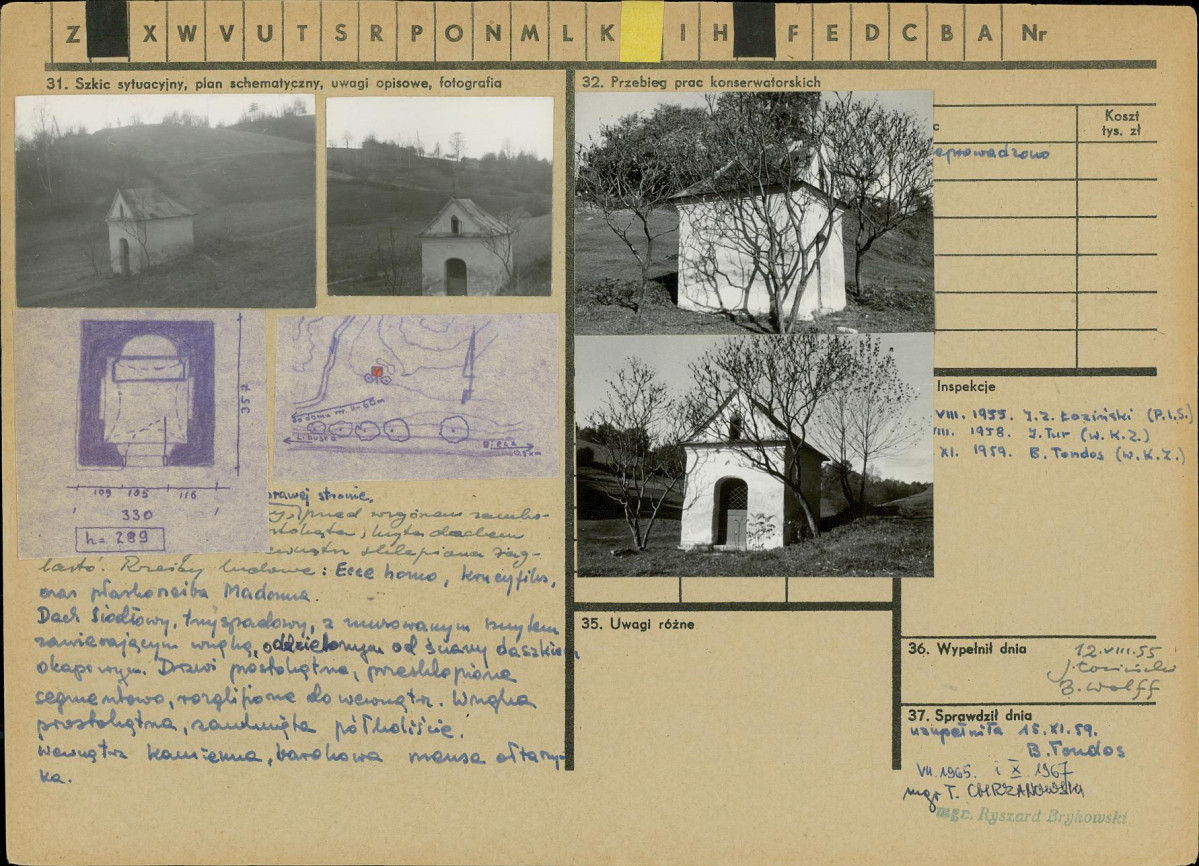 Z X W V U T S R P O N M L K I H F E D C B A Nr
31. Szkic sytuacyjny, plan schematyczny, uwagi opisowe, fotografia
357
109 105 116
330
h= 289
do domu nr. 11-60m
Libusza
Biecz
0,5km
prawej stronie.
przed wzgórzem zamko-
kryta dachem
wewnątrz sklepiona żag-
lasto. Rzeźby ludowe: Ecce homo, krucyfiks,
oraz płaskorzeźba Madonna.
Dach siodłowy, trójspadowy, z murowanym szczytem
zawierającym wnękę, oddzielonym od ściany daszkiem
okapowym. Drzwi prostokątne, przesklepione
segmentowo, rozglifione do wewnątrz. Wnęka
prostokątna, zamknięta półkoliście.
Wewnątrz kamienna, barokowa mensa ołtarzy-
ka.
32. Przebieg prac konserwatorskich
Koszt
tys. zł
eprowadzono
Inspekcje
VIII. 1955. J.Z. Łoziński (P.I.S.)
VIII. 1958. J. Tur (W.K.Z.)
XI. 1959. B. Tondos (W.K.Z.)
35. Uwagi różne
36. Wypełnił dnia
12.VIII.55
J. Łoziński
B. Wolff
37. Sprawdził dnia
uzupełniła 15.XI.59.
B. Tondos
VII.1965. i X 1967
mgr T. CHRZANOWSKA
mgr. Ryszard Brykowski